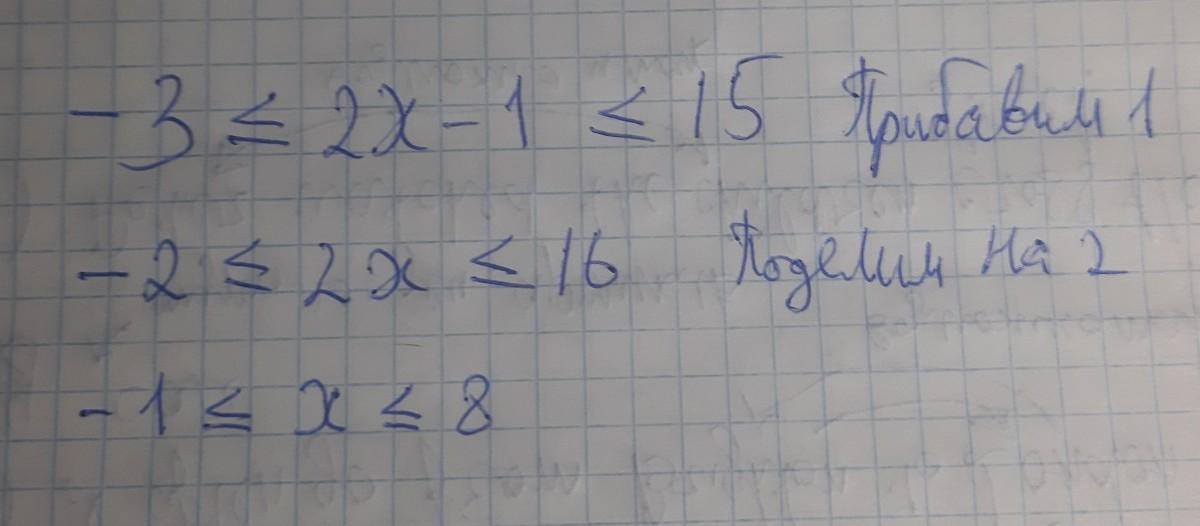 -3 ≤ 2x - 1 ≤ 15 Прибавим 1
-2 ≤ 2x ≤ 16 Поделим на 2
-1 ≤ x ≤ 8